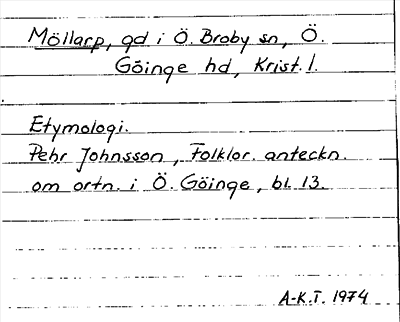 Möllarp, gd i Ö. Broby sn, Ö.
Göinge hd, Krist. l.
Etymologi.
Pehr Johnsson, Folklor. anteckn.
om ortn. i Ö. Göinge, bl. 13.
A-K.T. 1974